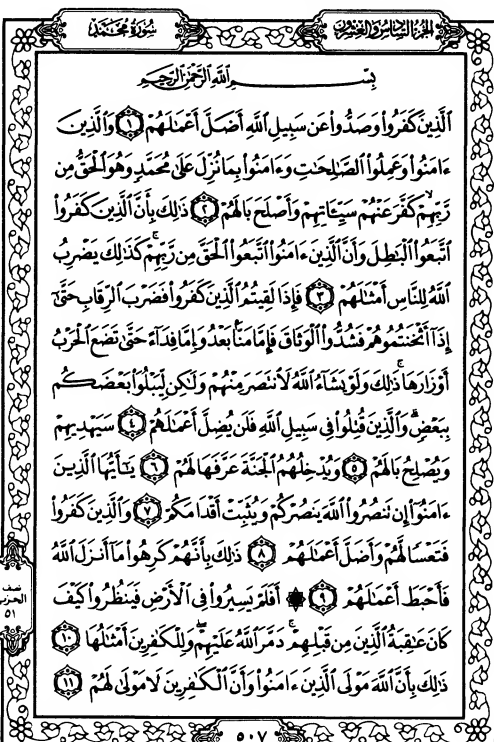 سُورَةُ مُحَمَّدٍ
الجزء السادس والعشرون
بِسْمِ اللَّهِ الرَّحْمَٰنِ الرَّحِيمِ
الَّذِينَ كَفَرُوا وَصَدُّوا عَن سَبِيلِ اللَّهِ أَضَلَّ أَعْمَـٰلَهُمْ ١ وَالَّذِينَ
ءَامَنُوا وَعَمِلُوا الصَّـٰلِحَـٰتِ وَءَامَنُوا بِمَا نُزِّلَ عَلَىٰ مُحَمَّدٍ وَهُوَ الْحَقُّ مِن
رَّبِّهِمْ ۙ كَفَّرَ عَنْهُمْ سَيِّـَٔاتِهِمْ وَأَصْلَحَ بَالَهُمْ ٢ ذَٰلِكَ بِأَنَّ الَّذِينَ كَفَرُوا
اتَّبَعُوا الْبَـٰطِلَ وَأَنَّ الَّذِينَ ءَامَنُوا اتَّبَعُوا الْحَقَّ مِن رَّبِّهِمْ ۚ كَذَٰلِكَ يَضْرِبُ
اللَّهُ لِلنَّاسِ أَمْثَـٰلَهُمْ ٣ فَإِذَا لَقِيتُمُ الَّذِينَ كَفَرُوا فَضَرْبَ الرِّقَابِ حَتَّىٰٓ
إِذَآ أَثْخَنتُمُوهُمْ فَشُدُّوا الْوَثَاقَ فَإِمَّا مَنًّۢا بَعْدُ وَإِمَّا فِدَآءً حَتَّىٰ تَضَعَ الْحَرْبُ
أَوْزَارَهَا ۚ ذَٰلِكَ وَلَوْ يَشَآءُ اللَّهُ لَانتَصَرَ مِنْهُمْ وَلَـٰكِن لِّيَبْلُوَا بَعْضَكُم
بِبَعْضٍ ۗ وَالَّذِينَ قُتِلُوا فِي سَبِيلِ اللَّهِ فَلَن يُضِلَّ أَعْمَـٰلَهُمْ ٤ سَيَهْدِيهِمْ
وَيُصْلِحُ بَالَهُمْ ٥ وَيُدْخِلُهُمُ الْجَنَّةَ عَرَّفَهَا لَهُمْ ٦ يَـٰٓأَيُّهَا الَّذِينَ
ءَامَنُوٓا إِن تَنصُرُوا اللَّهَ يَنصُرْكُمْ وَيُثَبِّتْ أَقْدَامَكُمْ ٧ وَالَّذِينَ كَفَرُوا
فَتَعْسًا لَّهُمْ وَأَضَلَّ أَعْمَـٰلَهُمْ ٨ ذَٰلِكَ بِأَنَّهُمْ كَرِهُوا مَآ أَنزَلَ اللَّهُ
فَأَحْبَطَ أَعْمَـٰلَهُمْ ٩ ۞ أَفَلَمْ يَسِيرُوا فِي الْأَرْضِ فَيَنظُرُوا كَيْفَ
كَانَ عَـٰقِبَةُ الَّذِينَ مِن قَبْلِهِمْ ۚ دَمَّرَ اللَّهُ عَلَيْهِمْ ۖ وَلِلْكَـٰفِرِينَ أَمْثَـٰلُهَا ١٠
ذَٰلِكَ بِأَنَّ اللَّهَ مَوْلَى الَّذِينَ ءَامَنُوا وَأَنَّ الْكَـٰفِرِينَ لَا مَوْلَىٰ لَهُمْ ١١
نصف
الحزب
٥١
٥٠٧